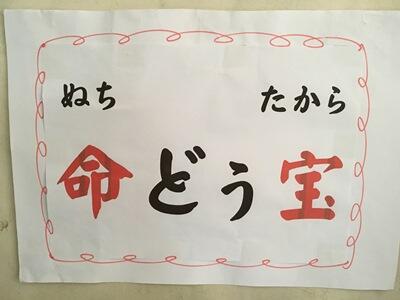 ぬち たから
命どぅ宝